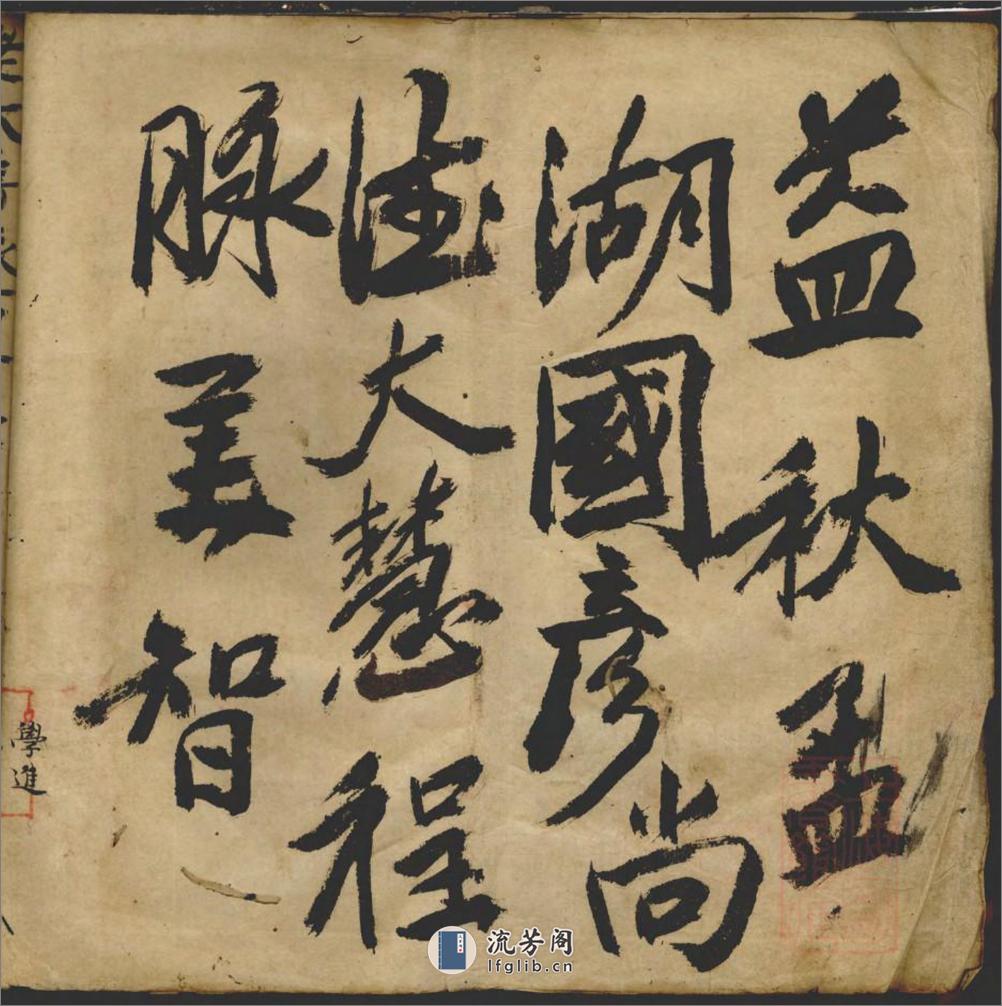 益秋孟
湖國彥尚
德大慧程
脉美智
學進
流芳阁
lfglib.cn